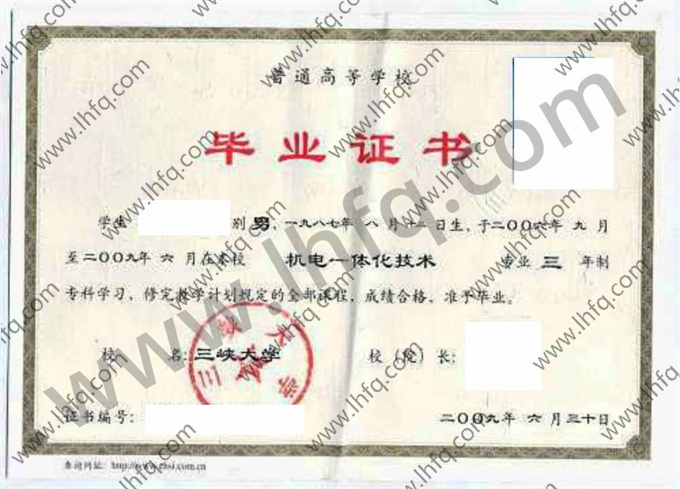 普通高等学校
毕业证书
学生 别 男，一九八七年 八 月十二日生，于二〇〇六年 九 月
至二〇〇九年 六 月在本校 机电一体化技术 专业 三 年制
专科学习，修完教学计划规定的全部课程，成绩合格，准予毕业。
校 名：三峡大学 校（院）长：
三峡大学
证书编号： 二〇〇九年 六 月三十日
查询网址：http://www.chsi.com.cn
www.lhfq.com